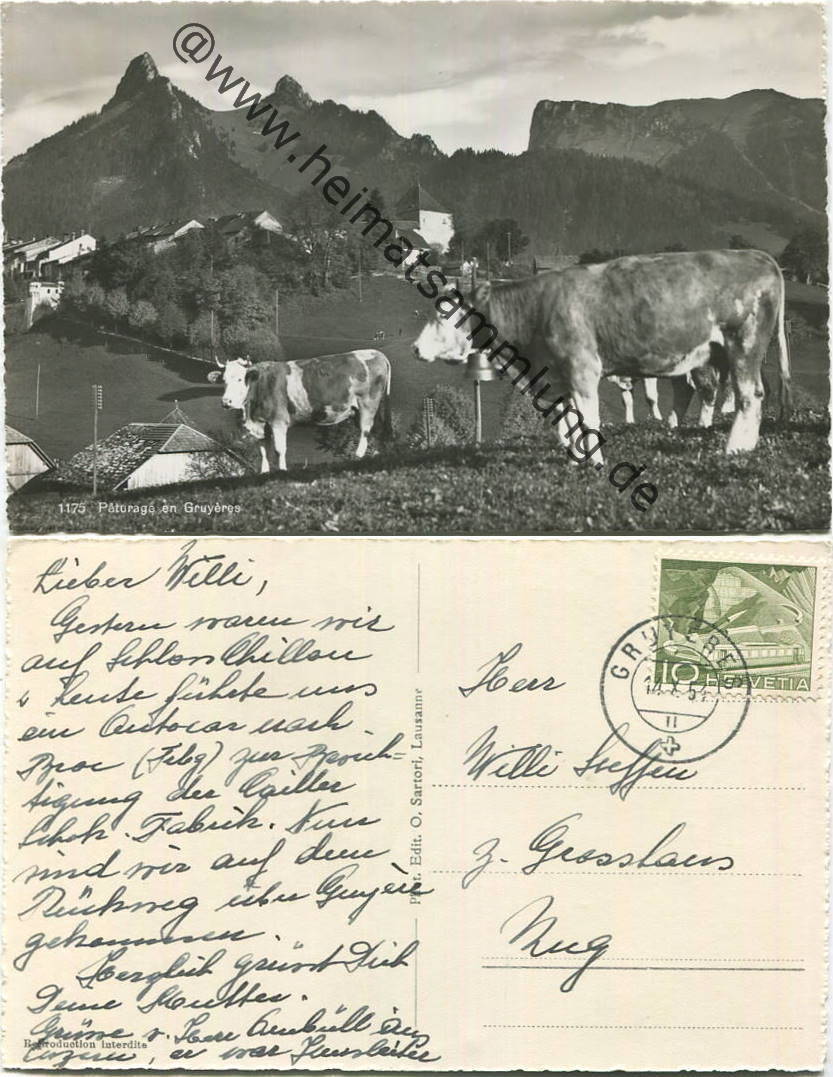 @www.heimatsammlung.de
1175 Pâturage en Gruyères
Lieber Willi,
Gestern waren wir
auf Schloss Chillon
& heute führte uns
ein Autocar nach
Broc (Frbg) zur Besich-
tigung der Cailler
Schok. Fabrik. Nun
sind wir auf dem
Rückweg über Gruyère
gekommen.
Herzlich grüsst Dich
Deine Mutter.
Grüsse v. Herr Ambühl aus
Luzern, er war
Reproduction interdite
Phot. Edit. O. Sartori, Lausanne
GRUYERES
10 HELVETIA
Herr
Willi Steffen
z. Grosshaus
Zug